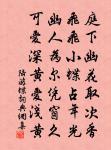 庭下幽花取次香
飛飛小蝶占年光
幽人為爾凭窗久
可愛深黃愛淺黃
陸游蝶詞典網集